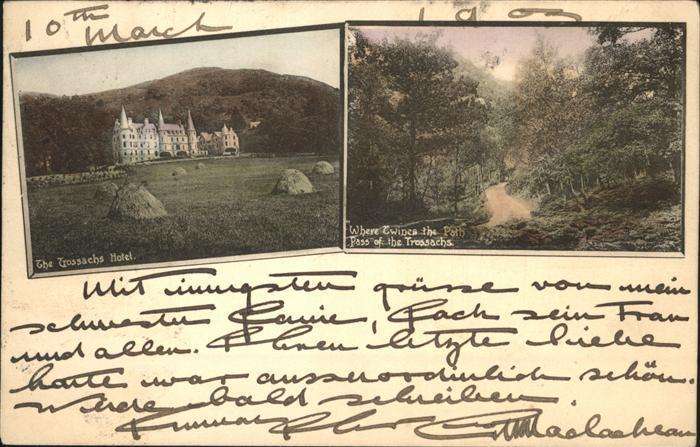 10th March 190
The Trossachs Hotel.
Where Twines the Path
Pass of the Trossachs.
Mit innigsten grüsse von mein
schwester Janie, Jack sein Frau
und allen. Ihren letzte liebe
karte war ausserordinlich schön.
Werde bald schreiben.
Maclachlan